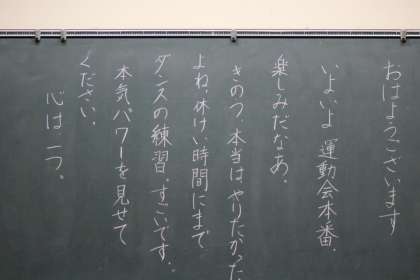 おはようございます
いよいよ運動会本番。
楽しみだなあ。
きのう、本当はやりたかった
よね。休けい時間にまで
ダンスの練習。すごいです。
本気パワーを見せて
ください。
心は一つ。